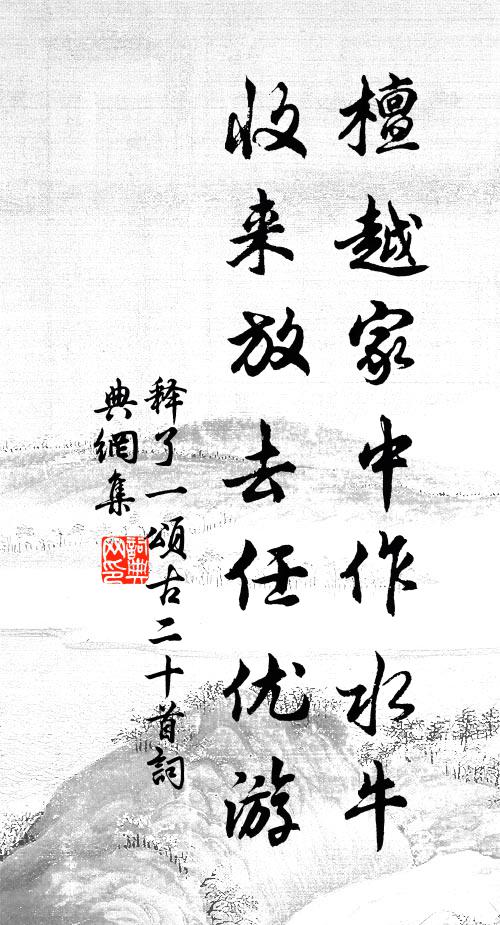 檀越家中作水牛
收来放去任优游
释了一颂古二十首詞
典網集
詞典
网印